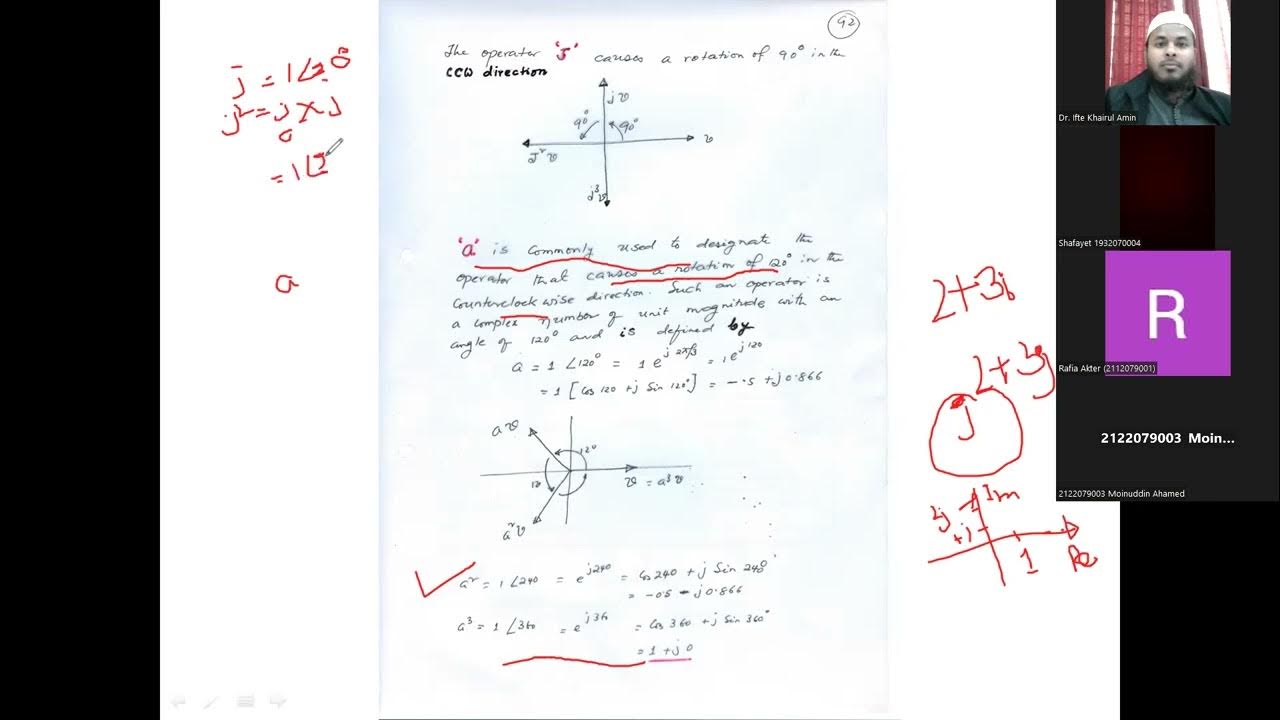 92
The operator 'J' causes a rotation of 90° in the
CCW direction
jv
90°
90°
v
J²v
j³v
'a' is commonly used to designate the
operator that causes a rotation of 120° in the
counterclockwise direction. Such an operator is
a complex number of unit magnitude with an
angle of 120° and is defined by
a = 1 ∠120° = 1 e^j 2π/3 = 1 e^j 120
= 1 [Cos 120 + j Sin 120°] = -.5 + j 0.866
av
120
120
v = a³v
a²v
a² = 1 ∠240 = e^j240 = Cos 240 + j Sin 240°
= -0.5 - j 0.866
a³ = 1 ∠360 = e^j 360 = Cos 360 + j Sin 360°
= 1 + j 0
j = 1∠90°
j² = j × j
= 1∠
a
2+3i
2+3j
j
Im
+j
1
Re
Dr. Ifte Khairul Amin
Shafayet 1932070004
R
Rafia Akter (2112079001)
2122079003 Moin...
2122079003 Moinuddin Ahamed